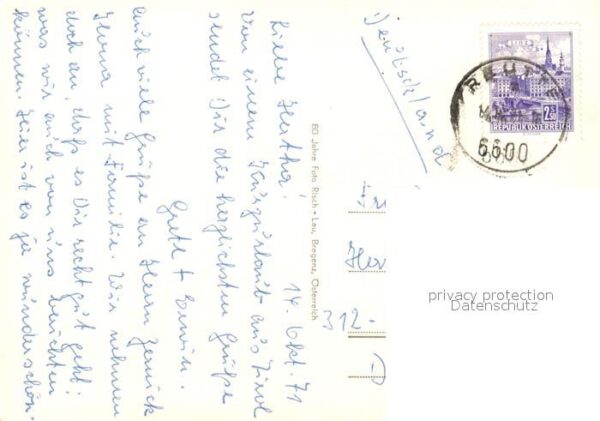 14. Okt. 71
Liebe Hertha!
Von einem Kurzurlaub aus Tirol
sendet Dir die herzlichsten Grüße
Gretl + Erwin.
Auch viele Grüße an Herrn
mit Familie. Wir nehmen
doch an, daß es Dir recht gut geht!
was wir auch von uns berichten
können. Hier ist es ja wunderschön.
80 Jahre Foto Risch • Lau, Bregenz, Österreich
Deutschland
LINZ
2.50
REPUBLIK ÖSTERREICH
REUTTE
6600
312-
D
privacy protection
Datenschutz